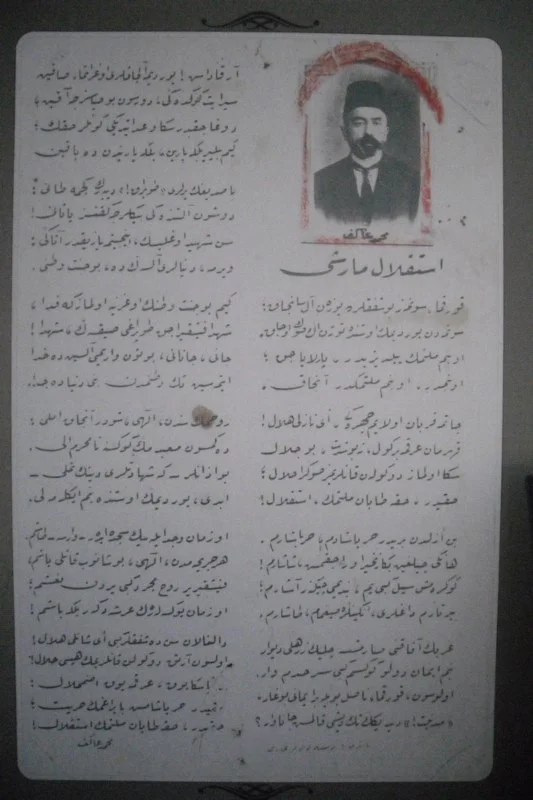 محمد عاكف
استقلال مارشى
قورقما، سونمز بو شفقلرده يوزن آل سانجاق؛
سونمدن يورديمك اوستنده توتن اك صوك اوجاق.
او بنم ملتمك ييلديزيدر، پارلاياجق؛
او بنمدر، او بنم ملتمكدر آنجاق.
چاتما، قربان اولايم، چهره كى، أى نازلى هلال!
قهرمان عرقمه بر كول، نه بو شدت، بو جلال
سكا اولماز دوكولن قانلريمز صوكرا حلال؛
حقيدر، حقه طاپان ملتمك، استقلال!
بن ازلدن بريدر حر ياشادم، حر ياشارم.
هانكى چيلغين بكا زنجير اوراجقمش، شاشارم!
كوكره مش سيل كبى يم، بنديمى چيكنر آشارم؛
ييرتارم داغلرى، انكينلره صيغمام، طاشارم.
غربك آفاقنى صارمشسه چليك زرهلى ديوار
بنم ايمان دولو كوكسم كبى سرحدم وار.
اولوسون، قورقما، ناصل بويله بر ايمانى بوغار،
«مدنيت!» ديديكك تك ديشى قالمش جاناوار؟
آرقاداش! يورديمه آلچاقلرى اوغراتما، صاقين
سپر ايت كوكده كى، دورسون بو حياسزجه آقين.
دوغاجقدر سكا وعد ايتديكى كونلر حقك؛
كيم بيلير، بلكه يارين، بلكه ياريندن ده ياقين
باصديغك يرلرى «طوپراق!» دييه رك كچمه، طانى؛
دوشون آلتنده كى بيكلرجه كفنسز ياتانى!
سن شهيد اوغليسك، اينجيتمه، يازيقدر آتاكى؛
ويرمه، دنيالرى آلسه ك ده، بو جنت وطنى.
كيم بو جنت وطنك اوغرينه اولماز كه فدا،
شهدا فيشقيراجق طوپراغى صيقسه ك، شهدا!
جانى، جانانى، بوتون وارمى آلسين ده خدا
ايتمه سين تك وطنمدن بنى دنياده جدا.
روحمك سندن، الهى، شودر آنجاق املى؛
دكمه سين معبدمك كوكسنه نامحرم الى.
بو اذانلر - كه شهادتلرى دينك تملى -
ابدى، يورديمك اوستنده بنم ايكله ملى.
او زمان وجد ايله بيك سجده ايدر - وارسه - طاشم
هر جريحه مدن، الهى، بوشانوب قانلى ياشم،
فيشقيرير روح مجرد كبى يردن نعشم؛
او زمان يوكسله رك عرشه دكر بلكه باشم!
دالغالان سن ده شفقلر كبى أى شانلى هلال!
اولسون آرتق دوكولن قانلريمك هپسى حلال؛
ابدياً سكا يوق، عرقمه يوق اضمحلال؛
حقيدر، حر ياشامش بايراغمك حريت؛
حقيدر، حقه طاپان ملتمك استقلال!
محمد عاكف